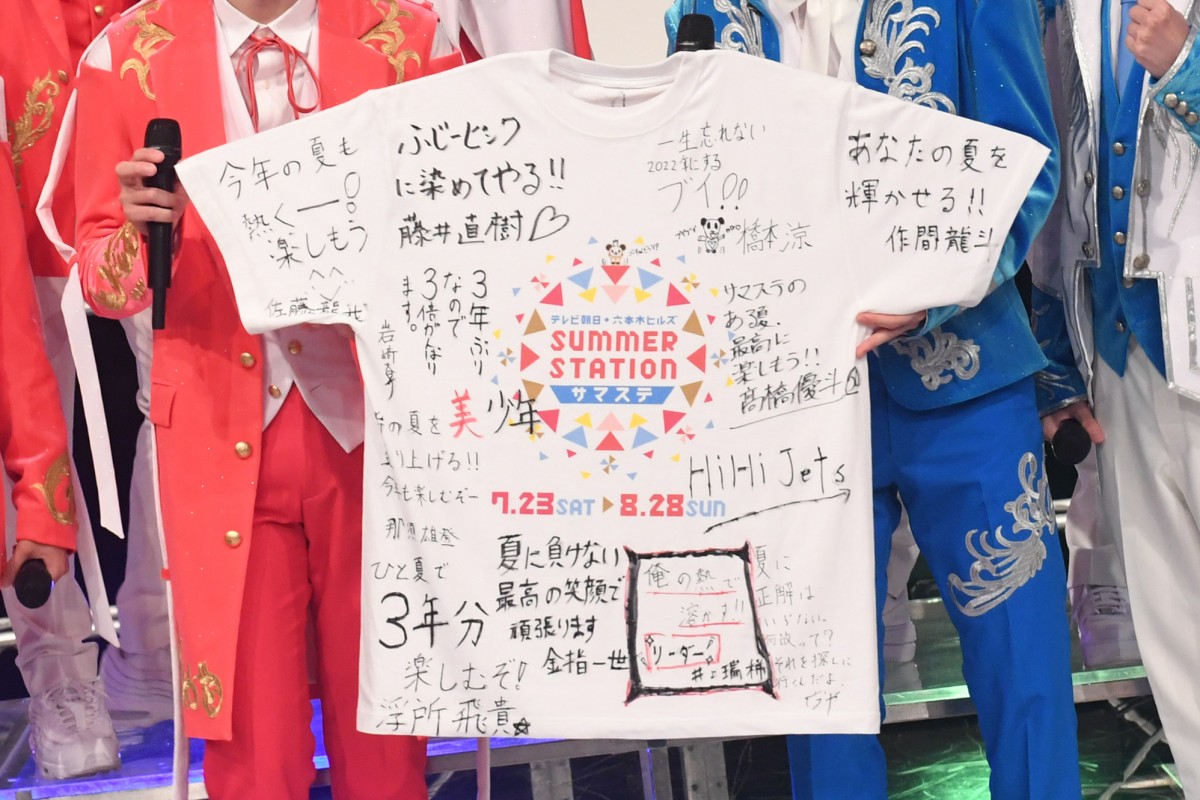 今年の夏も
熱くー!!
楽しもう
^^
佐藤龍我
ふじーピンク
に染めてやる!!
藤井直樹♡
一生忘れない
2022年にする
ブイ!!
橋本涼
あなたの夏を
輝かせる!!
作間龍斗
3年ぶり
なので
3倍がなり
ます。
岩﨑
テレビ朝日・六本木ヒルズ
SUMMER
STATION
サマステ
サマステの
ある夏、
最高に
楽しもう!!
髙橋優斗
の夏を
美 少年
り上げる!!
今年も楽しむぞー
那須雄登
HiHi Jets
7.23 SAT ▶ 8.28 SUN
ひと夏で
3年分
楽しむぞ!
浮所飛貴☆
夏に負けない
最高の笑顔で
頑張ります
金指一世
俺の熱で
溶かす!!
リーダー
井上瑞稀
夏に
正解は
いらない。
何故って?
それを探しに
行くんだよ。